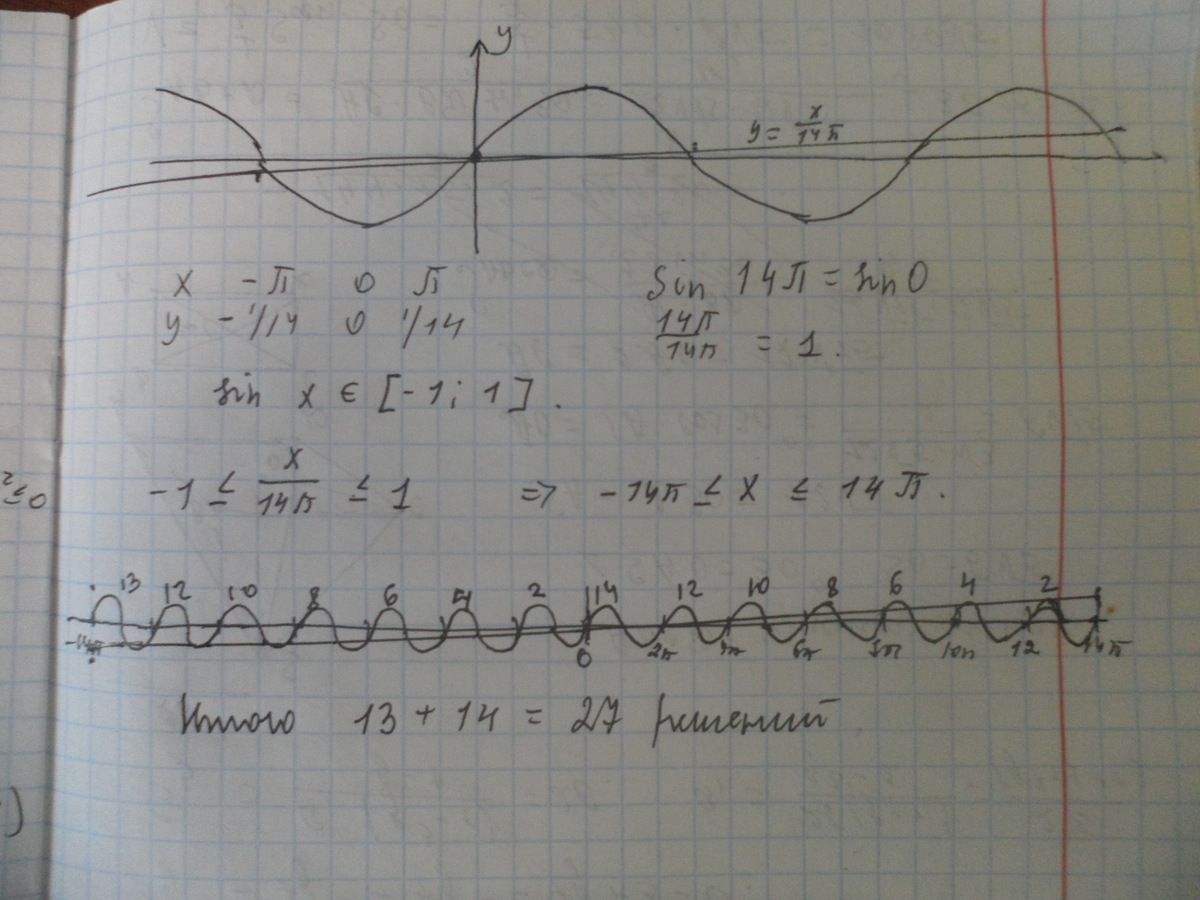 y
y = x/14π
x -π 0 π
y -1/14 0 1/14
sin 14π = sin 0
14π/14π = 1.
sin x ∈ [-1; 1].
≤0
-1 ≤ x/14π ≤ 1 => -14π ≤ x ≤ 14π.
13 12 10 8 6 4 2 14 12 10 8 6 4 2
-14π 0 2π 4π 6π 8π 10π 12 14π
Итого 13 + 14 = 27 решений